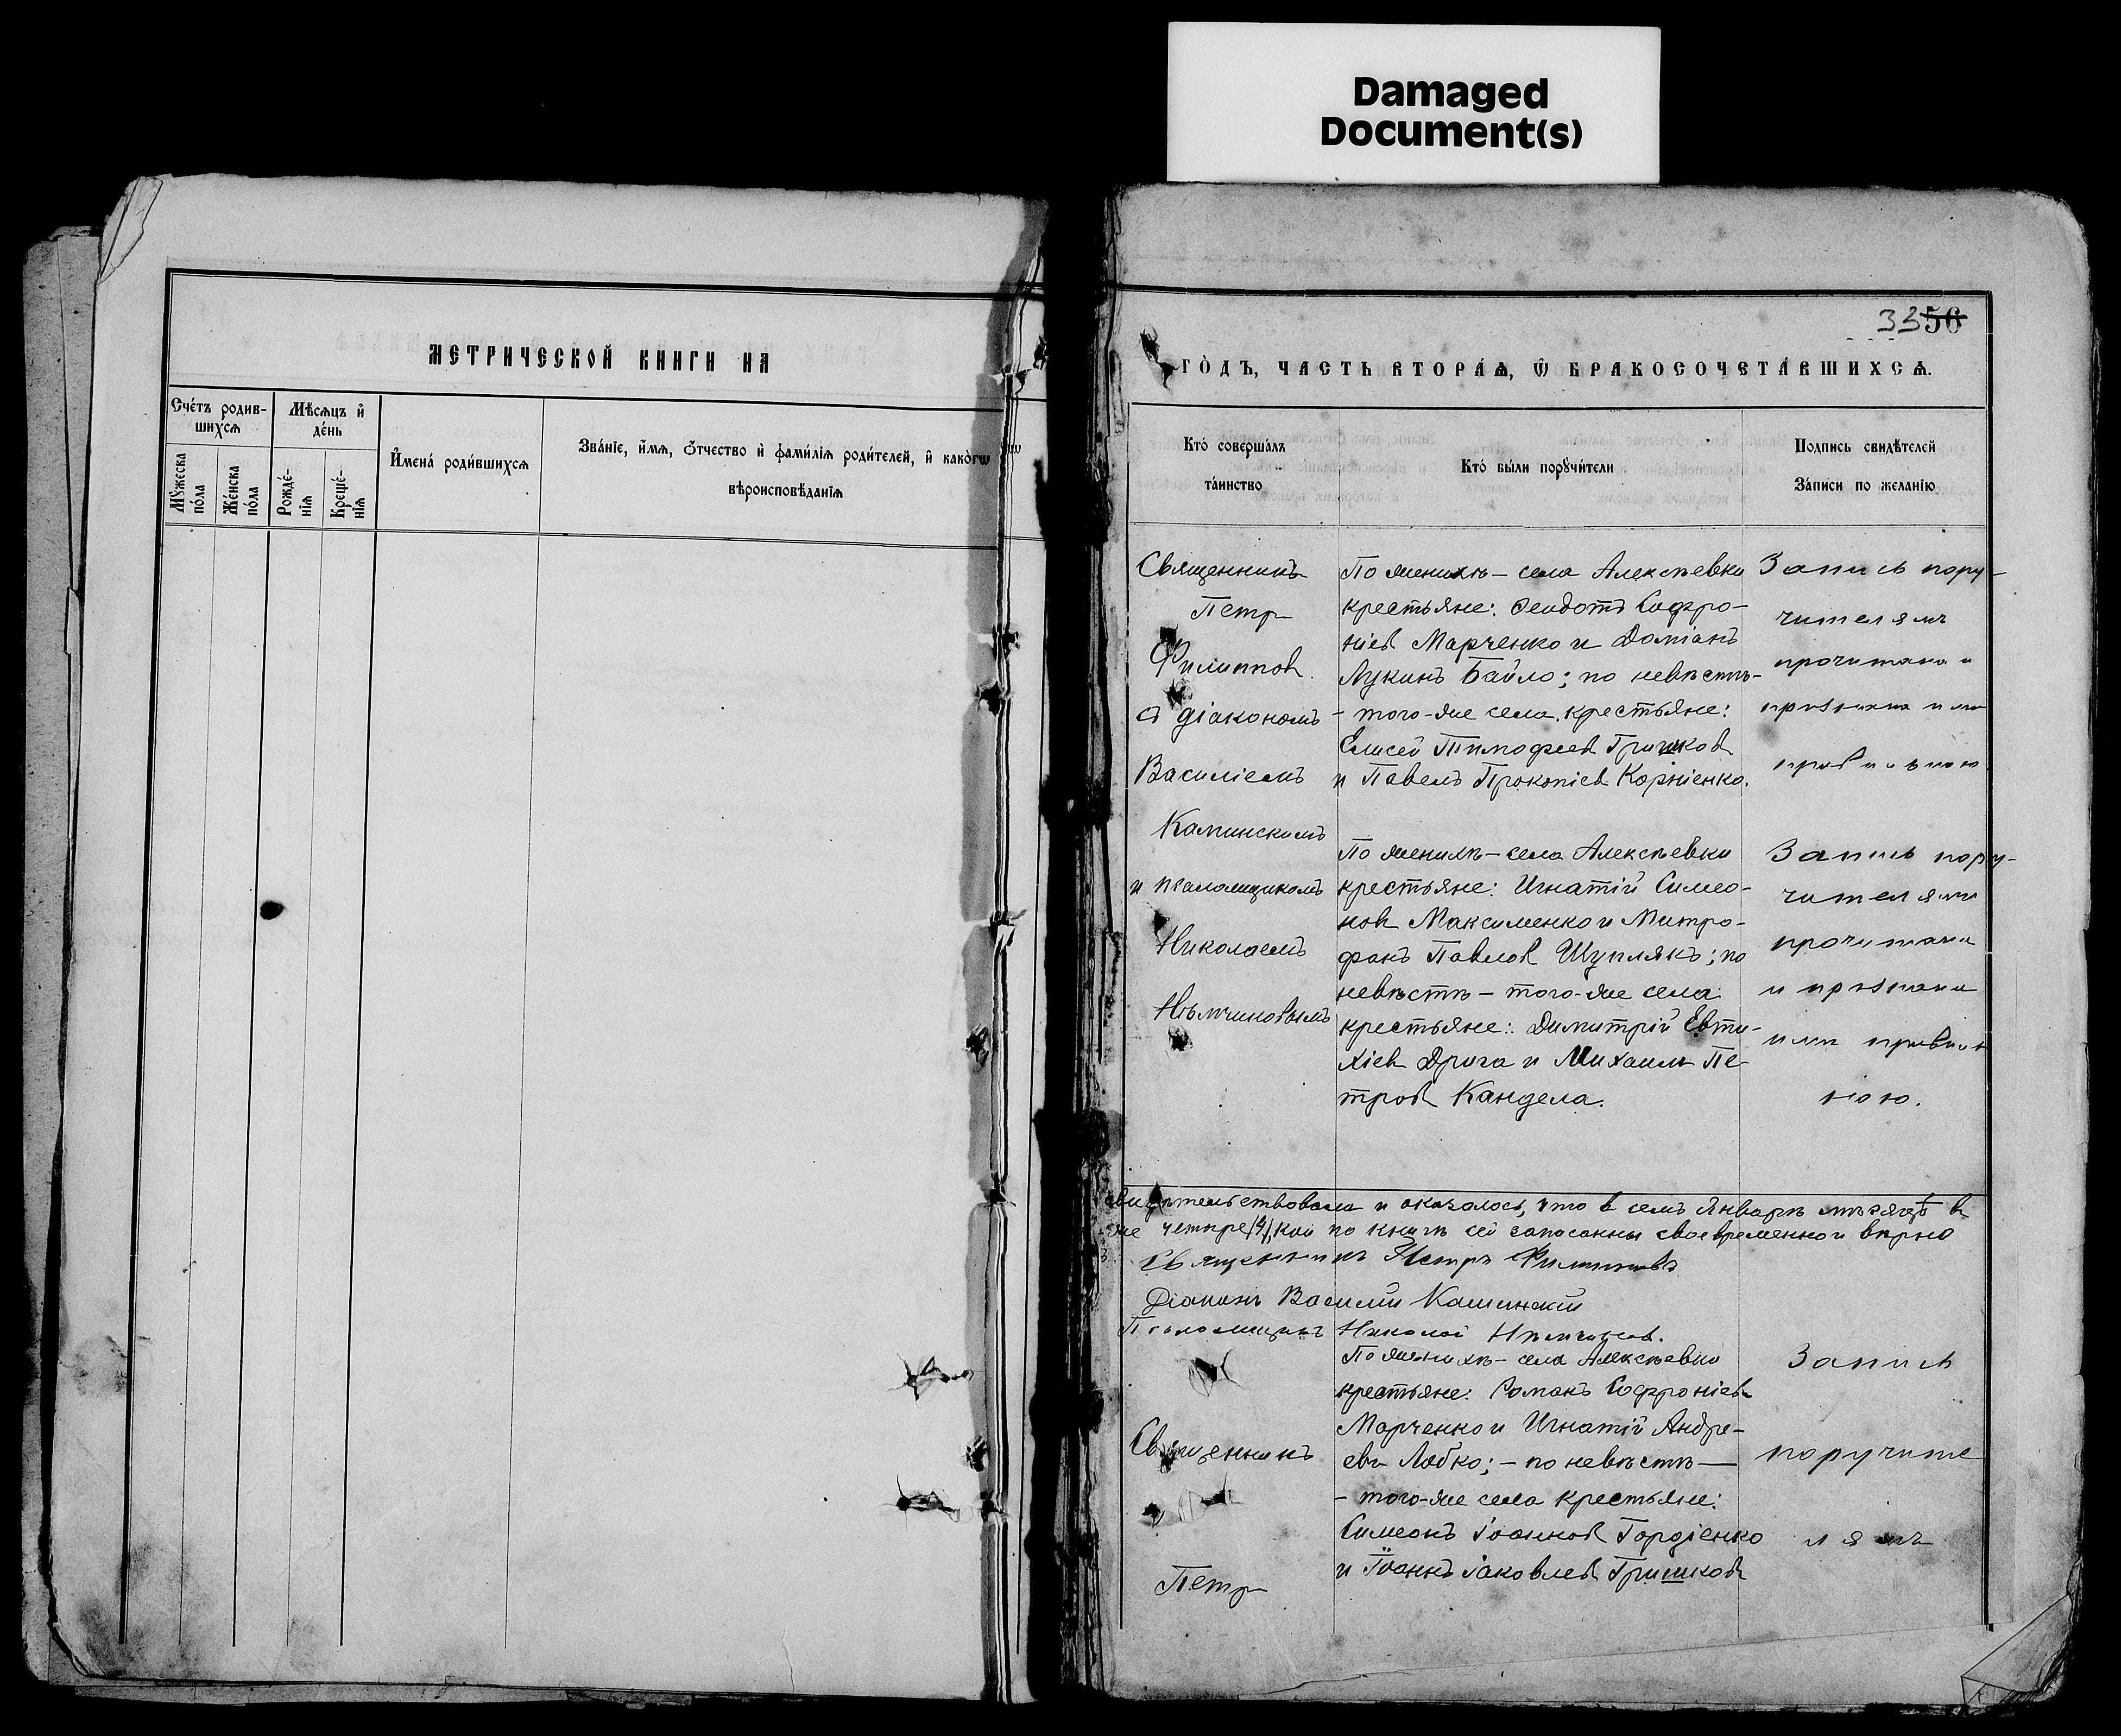 Damaged
Document(s)
МЕТРИЧЕСКОЙ КНИГИ НА
Сче́тъ родив-
шихсѧ
Мѣсѧцъ и҆
де́нь
Мꙋ́жеска
по́ла
Же́нска
по́ла
Рожде́-
нїѧ
Креще́-
нїѧ
И҆мена́ роди́вшихсѧ
Зва́нїе, и҆́мѧ, ѻ҆́тчество и҆ фами́лїѧ роди́телей, и҆ како́гѡ
вѣроисповѣ́данїѧ
33 56
ГО́ДЪ, ЧАСТЬ ВТОРА́Ѧ, Ѡ҆ БРАКОСОЧЕТА́ВШИХСѦ.
Кто́ соверша́лъ
та́инство
Кто́ бы́ли порꙋчи́тели
Подпись свидѣ́телей
За́писи по жела́нїю
Священникъ
Петръ
Филиппов
съ діакономъ
Василіемъ
Каминскимъ
и псаломщикомъ
Николаемъ
Нѣмчиновымъ
По женихѣ – села Алексѣевки
крестьяне: Ѳеодотъ Софро-
ніев Марченко и Доміанъ
Лукинъ Байло; по невѣстѣ –
– того-же села крестьяне:
Елисей Тимофеев Гришков
и Павелъ Прокопіев Корніенко.
Запись пору-
чителямъ
прочитана и
признана ими
правильною
По женихѣ – села Алексѣевки
крестьяне: Игнатій Симео-
нов Максименко и Митро-
фанъ Павлов Шуплякъ; по
невѣстѣ – того-же села
крестьяне: Димитрій Евти-
хіев Дрига и Михаилъ Пе-
тров Кандела.
Запись пору-
чителями
прочитана
и признана
ими правиль
ною.
свидѣтельствовали и оказалось, что в семъ Январѣ мѣсяцѣ в
же четыре /4/, кои по книгѣ сей записанны своевременно и вѣрно
Священникъ Петръ Филипповъ
Діаконъ Василій Каминскій
Псаломщикъ Николай Нѣмчинов.
Священникъ
Петръ
По женихѣ – села Алексѣевки
крестьяне: Романъ Софроніевъ
Марченко и Игнатій Андре-
евъ Лобко; – по невѣстѣ –
– того-же села крестьяне:
Симеонъ Іоаннов Гордіенко
и Іоаннъ Іаковлев Гришков
Запись
поручите
лямъ